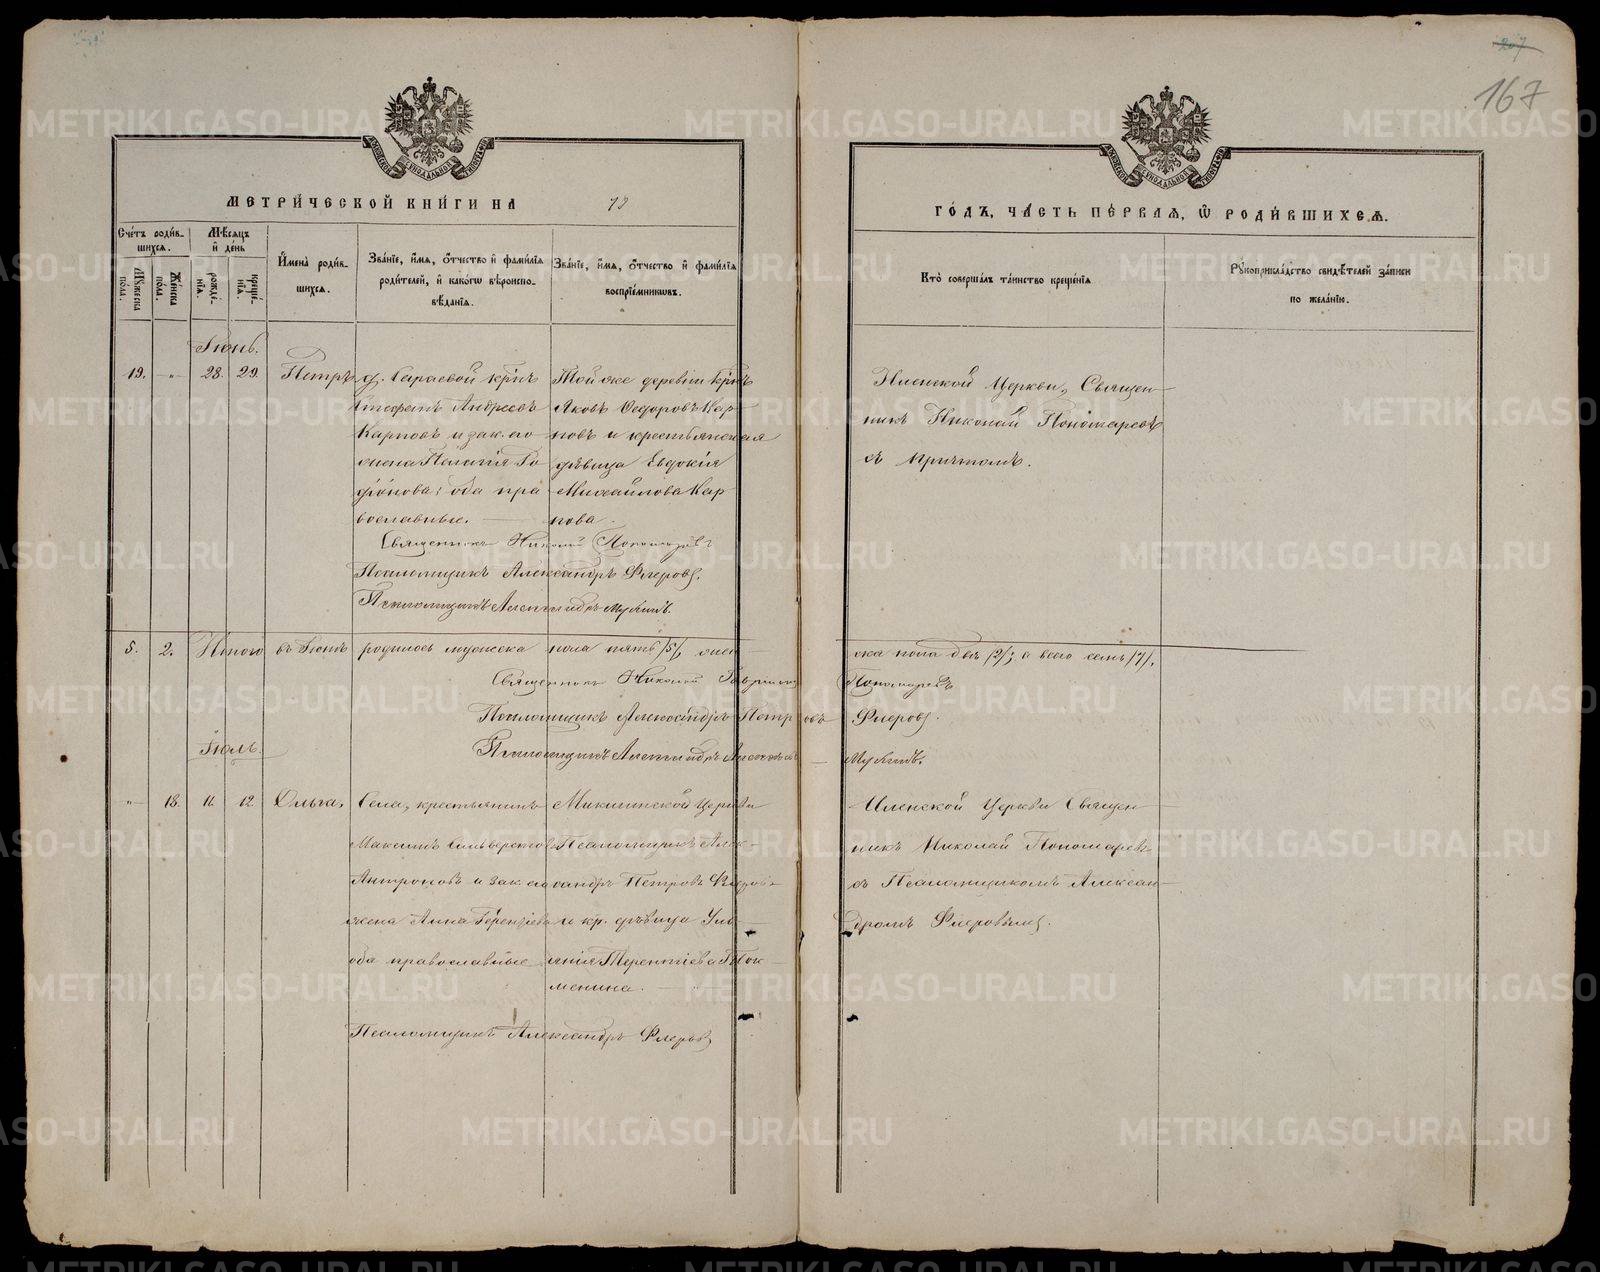 207
167
МЕТРИ́ЧЕСКОЙ КНИ́ГИ НА 78
ГО́ДЪ, ЧА́СТЬ ПЕ́РВАЯ, Ѿ РОДИ́ВШИХСЯ.
Сче́тъ роди́вшихся.
Мѣ́сяцъ и де́нь
Му́жеска пола.
Же́нска пола.
рожде́нїя.
креще́нїя.
Имена̀ роди́вшихся.
Зва́нїе, и́мя, о́тчество и фами́лїя роди́телей, и како́гѡ вѣроисповѣ́данїя.
Зва́нїе, и́мя, о́тчество и фами́лїя воспрїе́мникѡвъ.
Кто̀ соверша́лъ та́инство креще́нїя
Рꙋкоприкла́дство свидѣ́телей за́писи по жела́нїю.
Іюнь.
19. „ 28. 29. Петръ
д. Сараевой крнъ
Стефанъ Андреевъ
Карповъ и зак. его
жена Пелагія Ро
діонова; оба пра
вославные.
Той же деревни крнъ
Яковъ Ѳедоровъ Кар
повъ и крестьянская
дѣвица Евдокія
Михайлова Кар
пова.
Иленской Церкви, Священ
никъ Николай Пономаревъ
съ причтомъ.
Священникъ Николай Пономаревъ
Псаломщикъ Александръ Флеровъ.
Псаломщикъ
5. 2. Итого въ Іюнѣ родилось мужеска пола пять /5/, жен
ска пола два /2/; а всего семь /7/.
Священникъ Николай Пономаревъ
Псаломщикъ Александръ Петровъ Флеровъ.
Псаломщикъ
Іюль.
„ 18. 11. 12 Ольга.
Села, крестьянинъ
Максимъ Сильверстовъ
Антроповъ и зак. его
жена Анна Терентіева
оба православные
Микшинской Церкви
Псаломщикъ Алек
сандръ Петровъ Флеровъ
и кр. дѣвица Уль
янія Терентіева Ток
менина.
Иленской Церкви Священ
никъ Николай Пономаревъ
съ Псаломщикомъ Алексан
дромъ Флеровымъ.
Псаломщикъ Александръ Флеровъ
METRIKI.GASO-URAL.RU